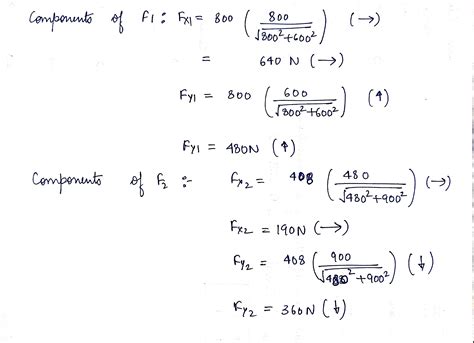 Components of F1: Fx1 = 800 (800/√800²+600²) (→)
= 640 N (→)
Fy1 = 800 (600/√800²+600²) (↑)
Fy1 = 480N (↑)
Components of F2 :- Fx2 = 408 (480/√480²+900²) (→)
Fx2 = 190N (→)
Fy2 = 408 (900/√480²+900²) (↓)
Fy2 = 360N (↓)